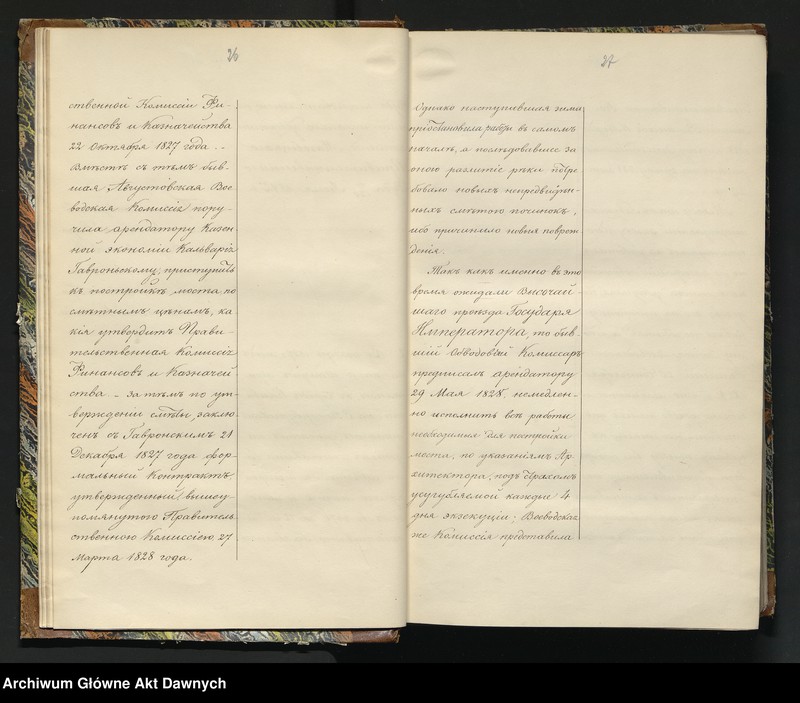 26
ственной Комиссіи Фи-
нансовъ и Казначейства
22 Октября 1827 года. -
Вмѣстѣ съ тѣмъ быв-
шая Августовская Вое
водская Комиссія пору-
чила арендатору Казен-
ной экономіи Кальварія
Гавроньскому, приступить
къ постройкѣ моста по
смѣтнымъ цѣнамъ, ка
кія утвердитъ Прави-
тельственная Комиссія
Финансовъ и Казначей
ства. - За тѣмъ по ут-
вержденіи смѣты, заклю-
ченъ съ Гавронскимъ 21
Декабря 1827 года фор-
мальный контрактъ,
утвержденный вышеу-
помянутою Правитель
ственною Комиссіею 27
Марта 1828 года.
27
Однако наступившая зима
пріостановила работы въ самомъ
началѣ, а послѣдовавшее за
оною разлитіе рѣки потре
бовало новыхъ непредвидѣн-
ныхъ смѣтою починокъ,
ибо причинило новыя поврож
денія.
Такъ какъ именно въ это
время ожидали Высочай-
шаго проѣзда Государя
Императора, то быв-
шій Обводовый Комиссаръ
предписалъ арендатору
29 Мая 1828, немедлен-
но исполнить всѣ работы
необходимыя для постройки
моста, по указаніямъ Ар
хитектора, подъ страхомъ
усугубляемой каждые 4
дня экзекуціи; Воеводская
же Комиссія представила
Archiwum Główne Akt Dawnych